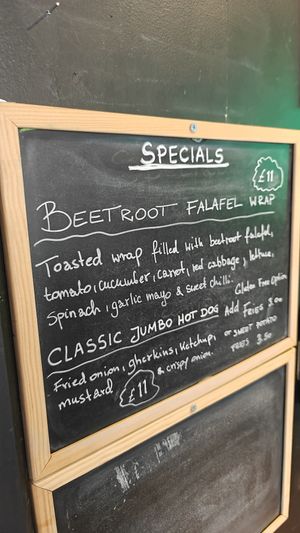 SPECIALS
£11
BEETROOT FALAFEL WRAP
Toasted wrap filled with beetroot falafel,
tomato, cucumber, carrot, red cabbage, lettuce,
Spinach, garlic mayo & sweet chilli. Gluten Free Option
CLASSIC JUMBO HOT DOG Add FRIES
Fried onion, gherkins, Ketchup, or SWEET POTATO
mustard £11 & crispy onion. FRIES 3.50